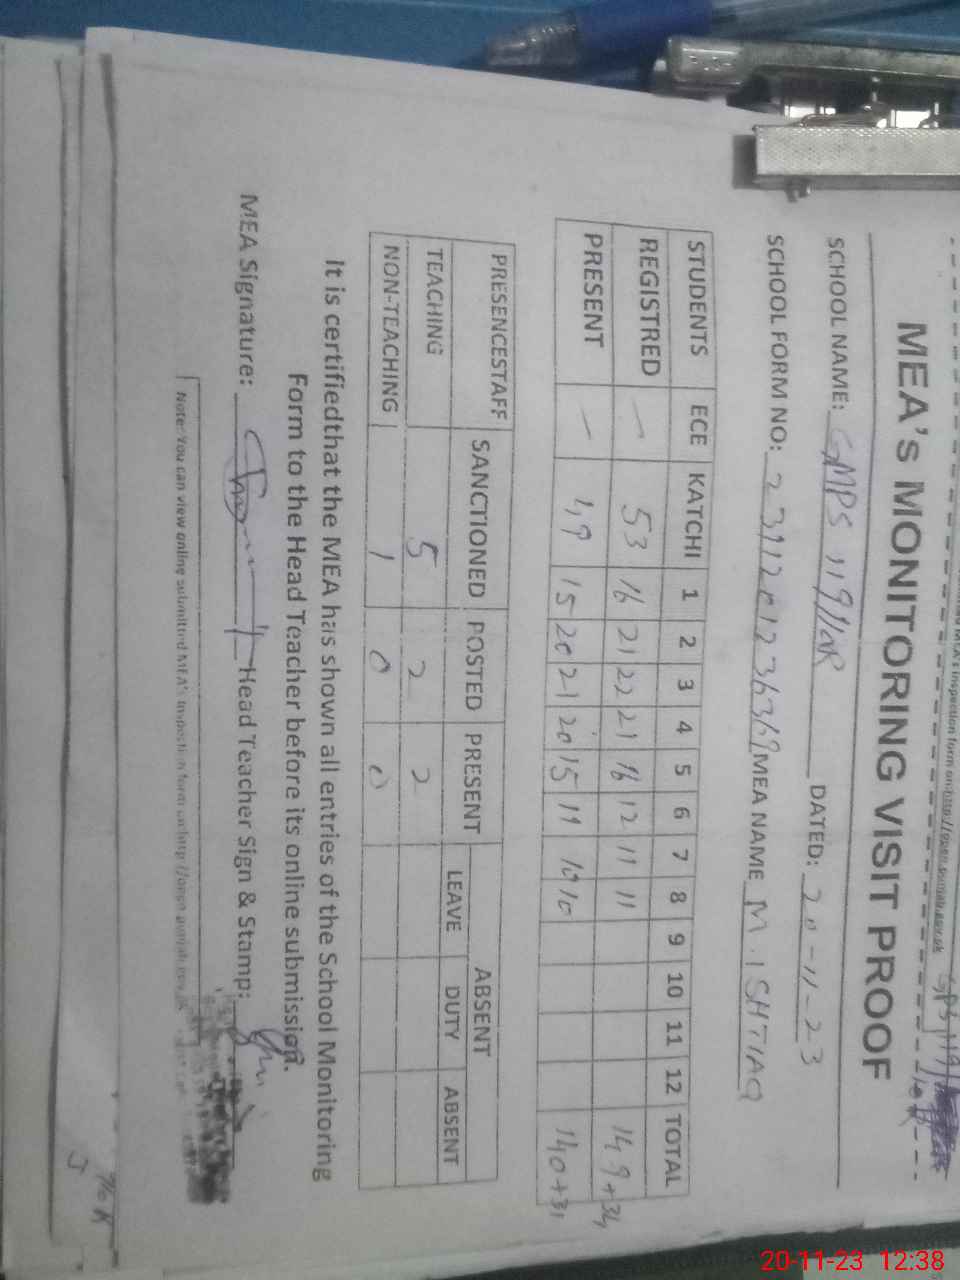 MEA's Inspection form on http://open.punjab.gov.pk
MEA's MONITORING VISIT PROOF
SCHOOL NAME: GMPS 119/10R DATED: 20-11-23
SCHOOL FORM NO: MEA NAME M. ISHTIAQ
STUDENTS ECE KATCHI 1 2 3 4 5 6 7 8 9 10 11 12 TOTAL
REGISTRED — 53 16 21 22 21 16 12 11 11 149+34
PRESENT — 49 15 20 21 20 15 11 10 10 140+31
PRESENCESTAFF SANCTIONED POSTED PRESENT ABSENT
LEAVE DUTY ABSENT
TEACHING 5 2 2
NON-TEACHING 1 0 0
It is certifiedthat the MEA has shown all entries of the School Monitoring
Form to the Head Teacher before its online submission.
MEA Signature: Head Teacher Sign & Stamp:
Note: You can view online submitted MEA's Inspection form on http://open.punjab.gov.pk
20-11-23 12:38